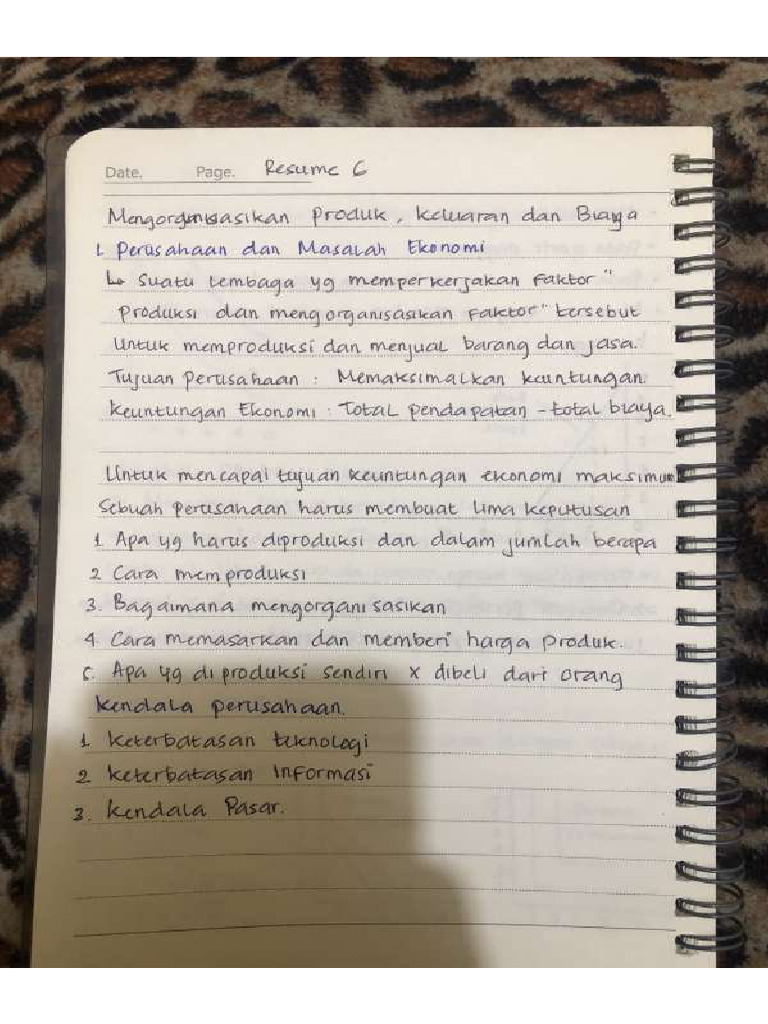 Date. Page. Resume 6
Mengorganisasikan Produk, Keluaran dan Biaya
1. Perusahaan dan Masalah Ekonomi
↳ Suatu lembaga yg memperkerjakan Faktor"
Produksi dan mengorganisasikan Faktor" tersebut
Untuk memproduksi dan menjual barang dan jasa.
Tujuan perusahaan : Memaksimalkan keuntungan
Keuntungan Ekonomi : Total pendapatan - total biaya.
Untuk mencapai tujuan keuntungan ekonomi maksimum
Sebuah perusahaan harus membuat lima keputusan
1 Apa yg harus diproduksi dan dalam jumlah berapa
2 Cara memproduksi
3. Bagaimana mengorganisasikan
4. Cara memasarkan dan memberi harga produk.
5. Apa yg di produksi sendiri x dibeli dari orang
Kendala perusahaan.
1 Keterbatasan teknologi
2 Keterbatasan Informasi
3. Kendala Pasar.